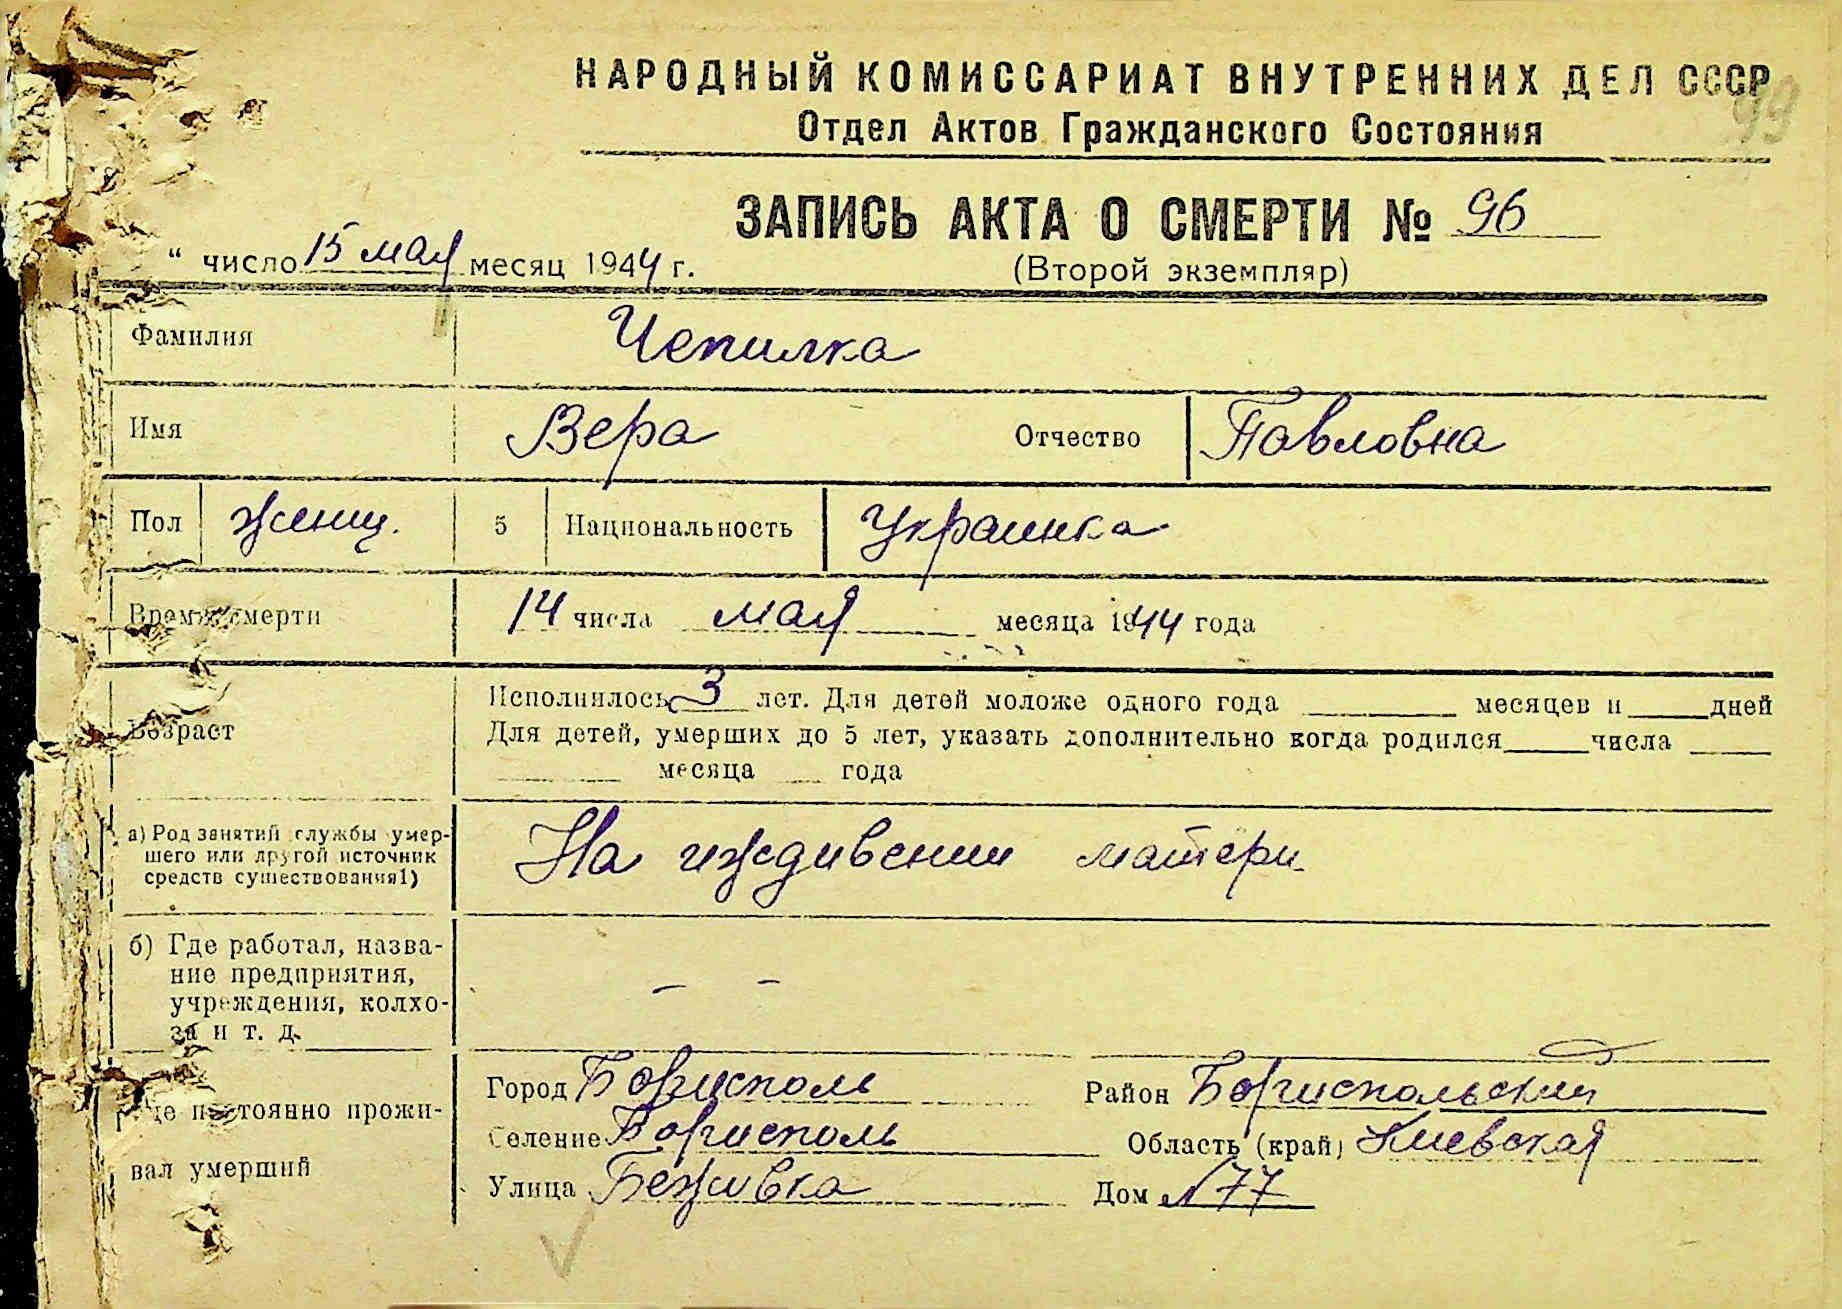 НАРОДНЫЙ КОМИССАРИАТ ВНУТРЕННИХ ДЕЛ СССР
99
Отдел Актов Гражданского Состояния
ЗАПИСЬ АКТА О СМЕРТИ № 96
“ число 15 мая месяц 1944 г.
(Второй экземпляр)
Фамилия Чепилка
Имя Вера Отчество Павловна
Пол женщ. 5 Национальность Украинка
Время смерти 14 числа мая месяца 1944 года
Возраст
Исполнилось 3 лет. Для детей моложе одного года ____ месяцев и ____ дней
Для детей, умерших до 5 лет, указать дополнительно когда родился ____ числа ____
____ месяца ____ года
а) Род занятий службы умер-
шего или другой источник
средств существования1)
На иждивении матери
б) Где работал, назва-
ние предприятия,
учреждения, колхо-
за и т. д.
– –
Где постоянно прожи-
вал умерший
Город Борисполь Район Бориспольский
Селение Борисполь Область (край) Киевская
Улица Беживка Дом №77